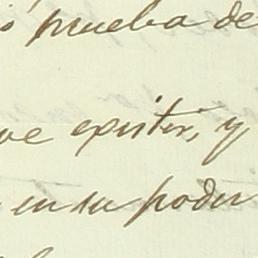 prueba de
existir, y
en su poder